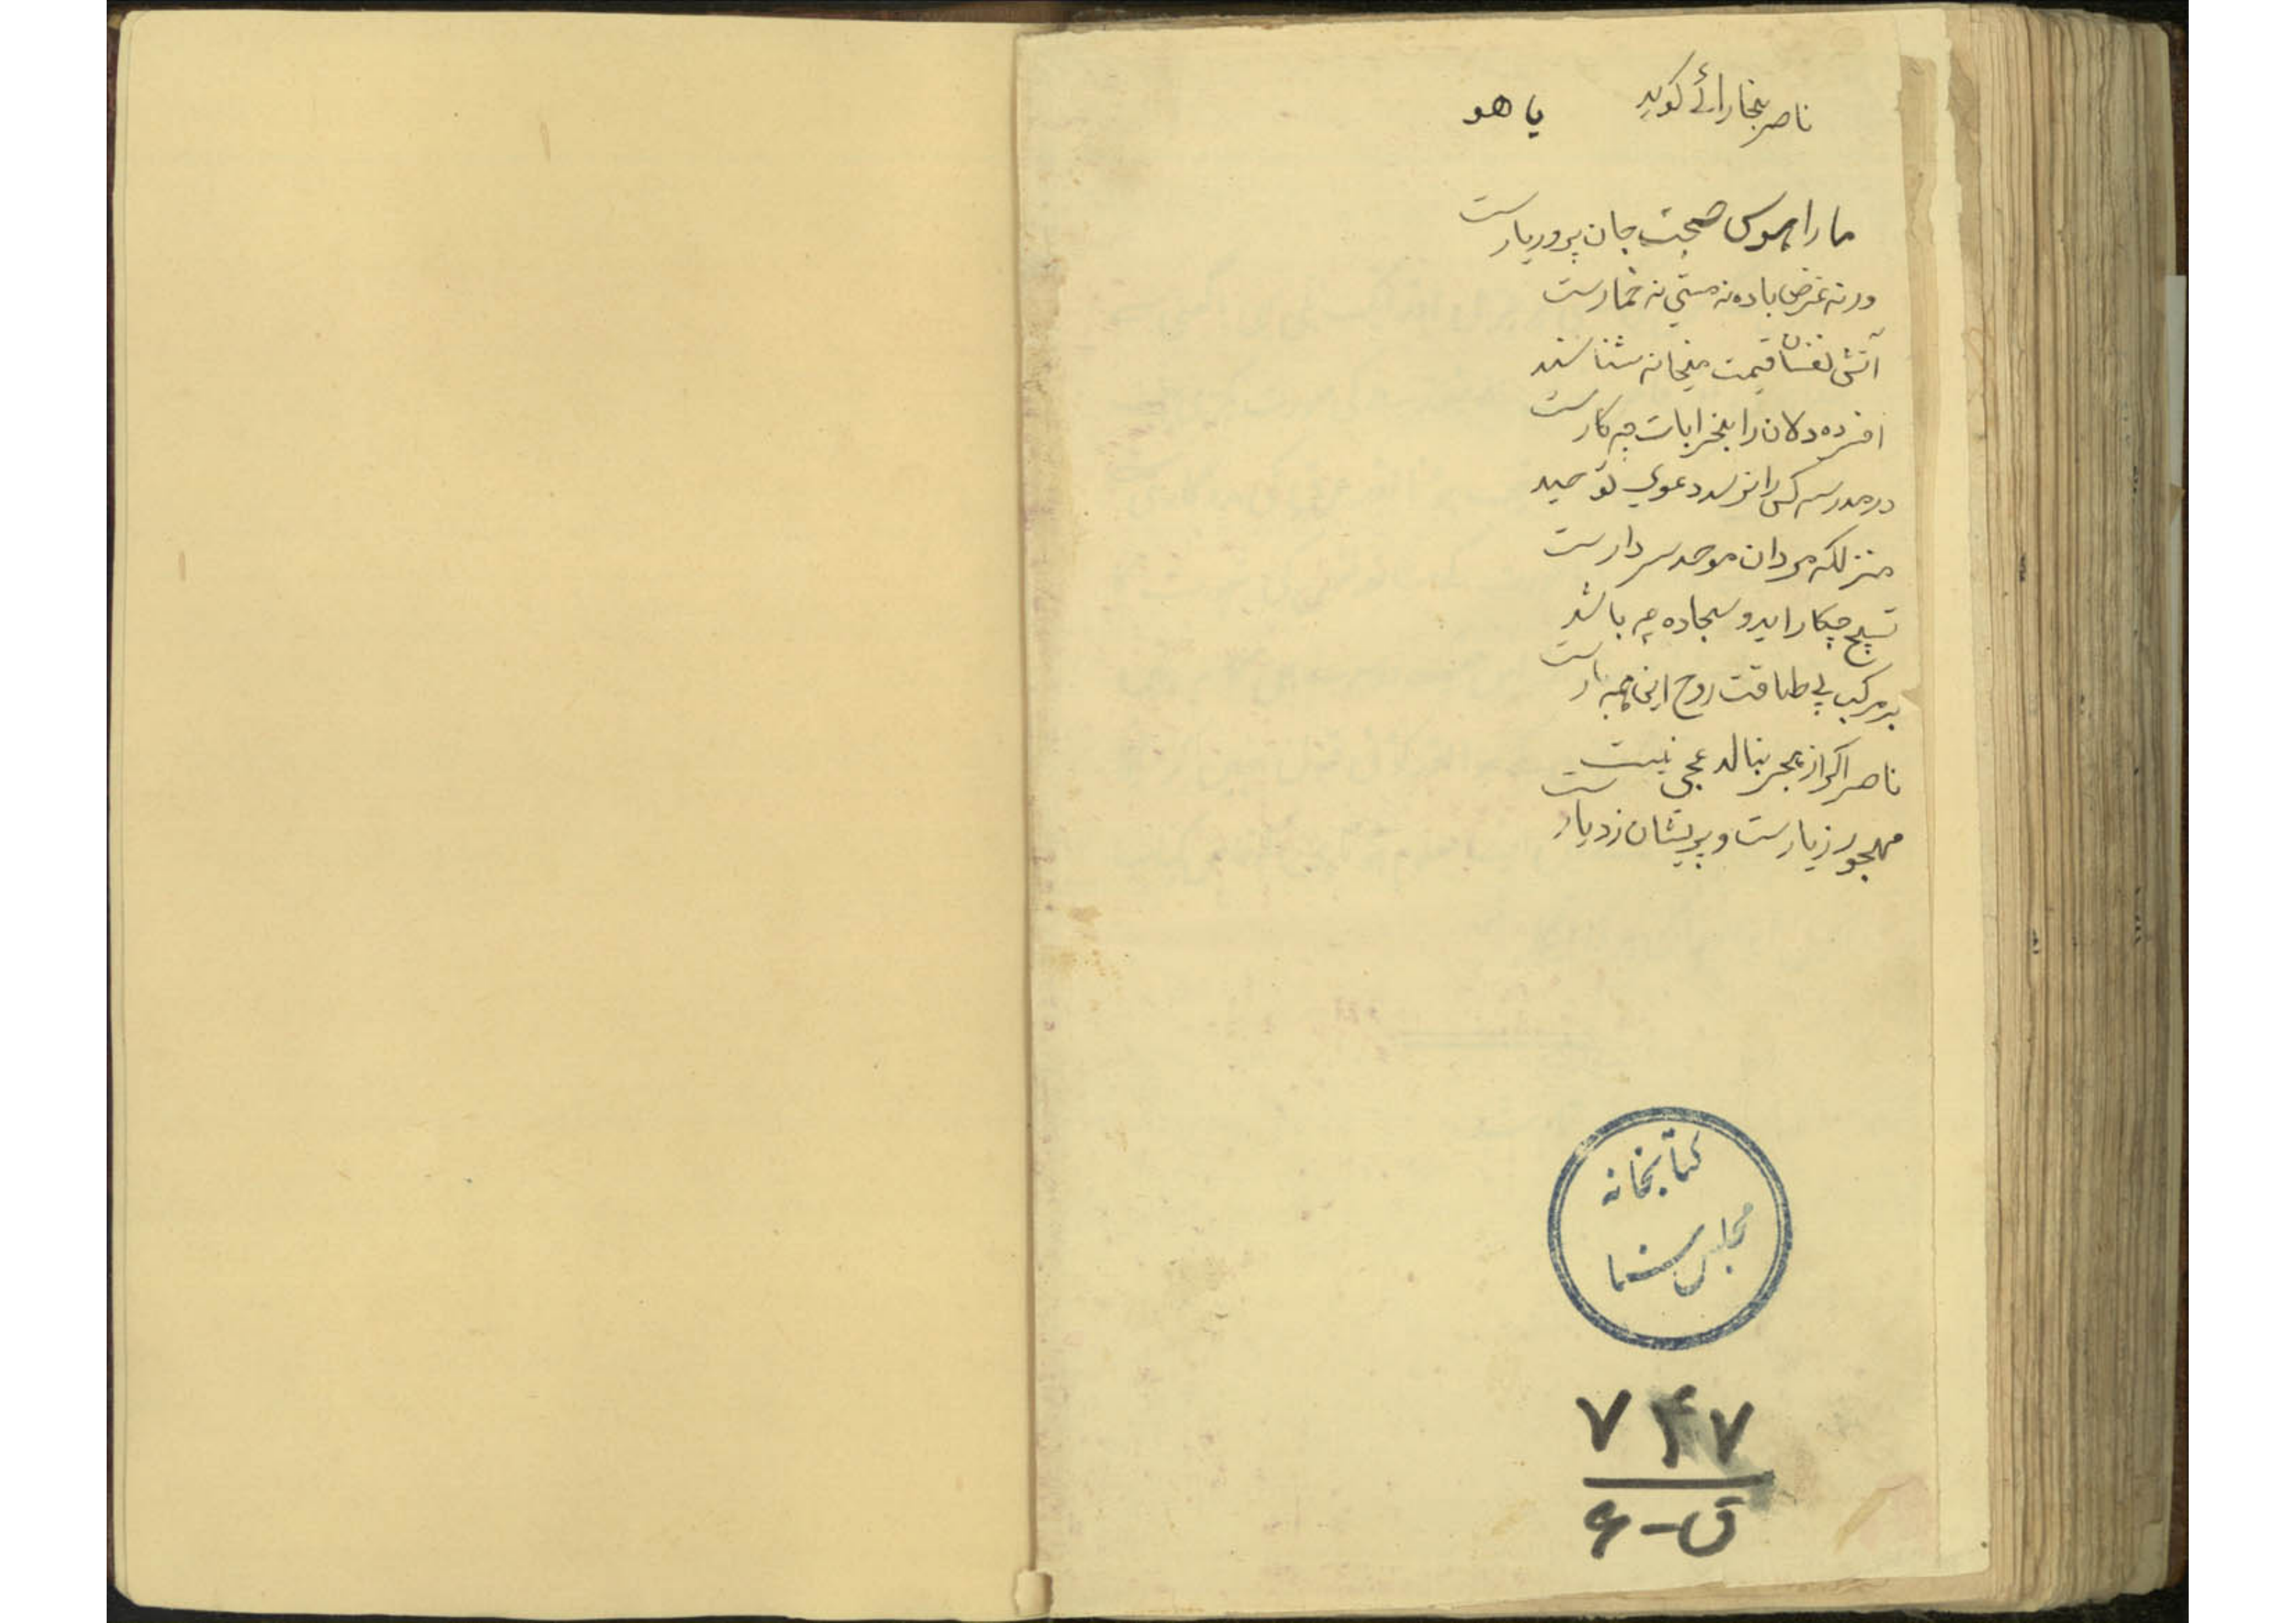 ناصر بخارائے کوید
یا هو
ما را هوس صحبت جان پرور یارست
ورنه غرض باده نه مستی نه خمارست
آتش نفسان قیمت میخانه شناسند
افسرده دلان را بخرابات چه کارست
در مدرسه کس را نرسد دعوی توحید
منزلکه مردان موحد سر دارست
تسبیح چکار اید و سجاده چه باشد
بر مرکب بی طاقت روح اینهمه بارست
ناصر اکر از هجر بنالد عجبی نیست
مهجور زیارست و پریشان ز دیارست
کتابخانه
مجلس سنا
۷۴۷
ق-۶